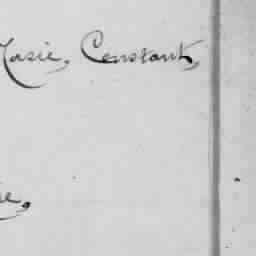 Marie, Constant,